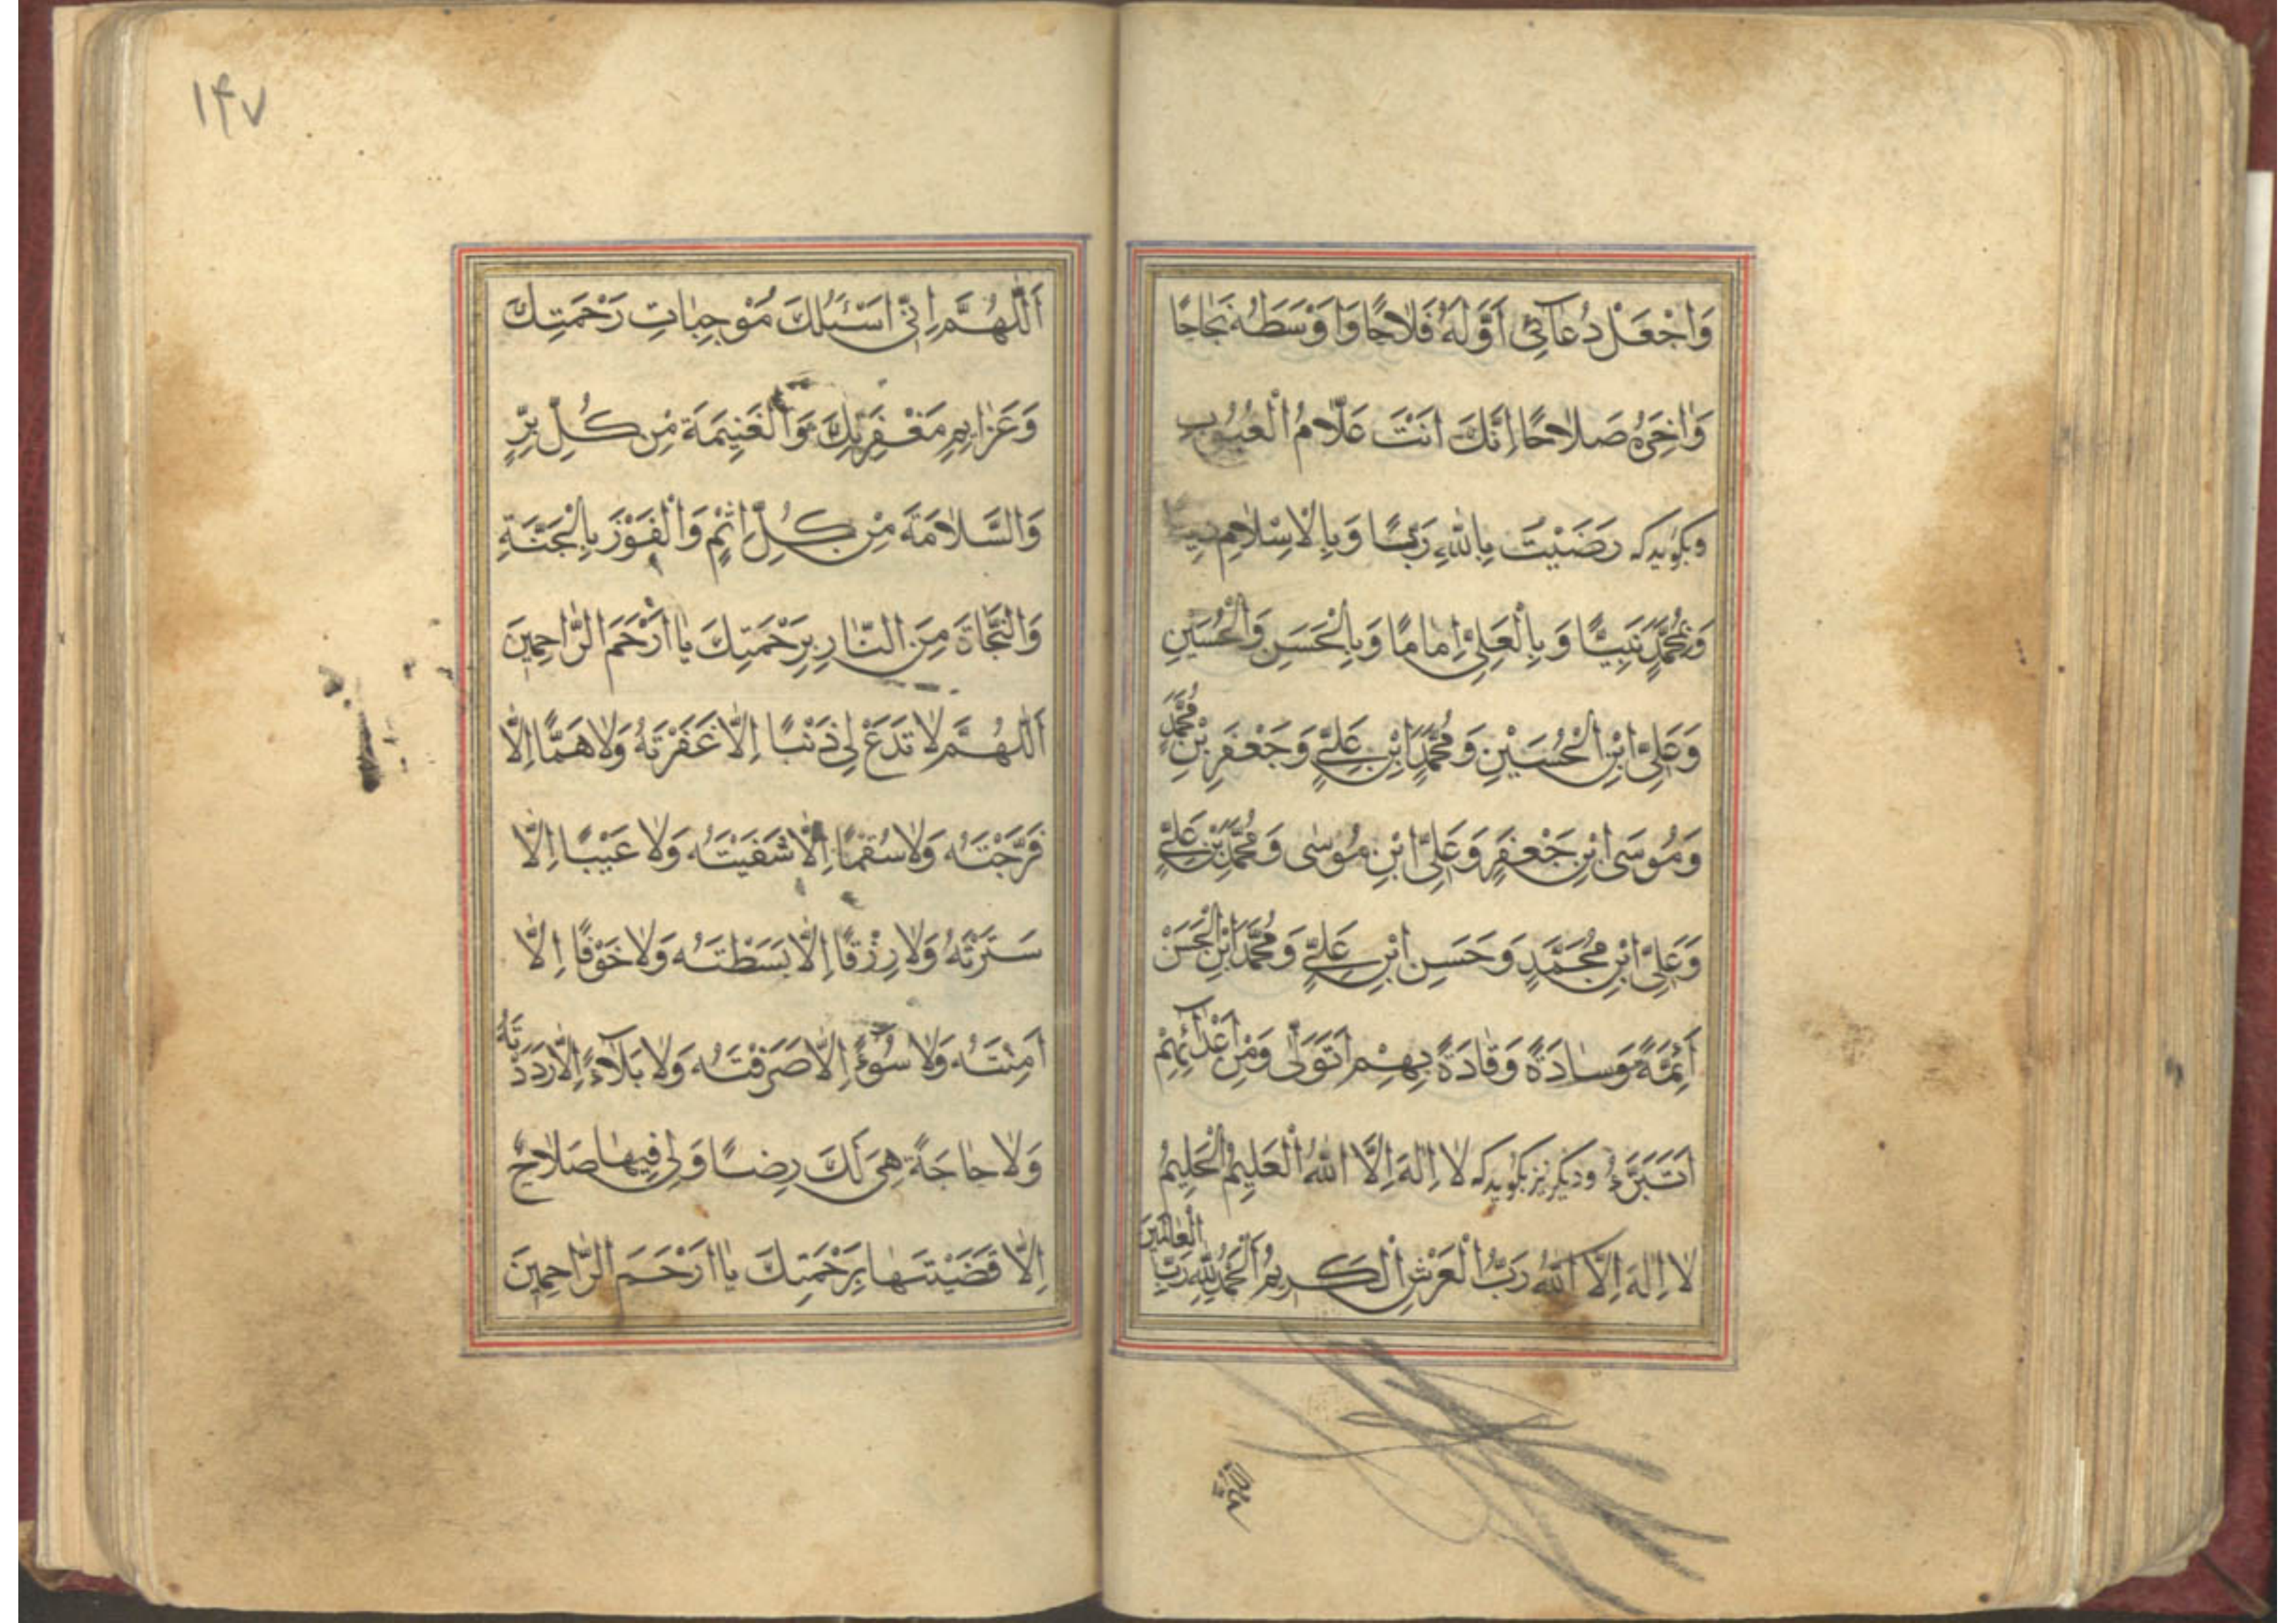 وَاجْعَلْ دُعَآئِی اَوَّلَهُ فَلَاحًا وَاَوْسَطَهُ نَجَاحًا
وَاٰخِرَهُ صَلَاحًا اِنَّكَ اَنْتَ عَلَّامُ الْغُيُوبِ
وبكويد كه رَضَيْتُ بِاللّٰهِ رَبًّا وَبِالْاِسْلَامِ
وَبِمُحَمَّدٍ نَبِيًّا وَبِالْعَلِیِّ اِمَامًا وَبِالْحَسَنِ وَالْحُسَيْنِ
وَعَلِیِّ ابْنِ الْحُسَيْنِ وَمُحَمَّدِ ابْنِ عَلِیٍّ وَجَعْفَرِ بْنِ مُحَمَّدٍ
وَمُوسَی ابْنِ جَعْفَرٍ وَعَلِیِّ ابْنِ مُوسٰی وَمُحَمَّدِ بْنِ عَلِیٍّ
وَعَلِیِّ ابْنِ مُحَمَّدٍ وَحَسَنِ ابْنِ عَلِیٍّ وَمُحَمَّدِ ابْنِ الْحَسَنْ
اَئِمَّةً وَسَادَةً وَقَادَةً بِهِمْ اَتَوَلّٰی وَمِنْ اَعْدَآئِهِمْ
اَتَبَرَّءُ وديكر نيز بكويد كه لَا اِلٰهَ اِلَّا اللّٰهُ الْعَلِيمُ الْحَلِيمُ
لَا اِلٰهَ اِلَّا اللّٰهُ رَبُّ الْعَرْشِ الْكَرِيمُ اَلْحَمْدُ لِلّٰهِ رَبِّ الْعَالَمِينَ
اللهم
۱۴۷
اَللّٰهُمَّ اِنِّی اَسْئَلُكَ مُوْجِبَاتِ رَحْمَتِكَ
وَعَزَايِمِ مَغْفِرَتِكَ وَالْغَنِيمَةَ مِنْ كُلِّ بِرٍّ
وَالسَّلَامَةَ مِنْ كُلِّ اِثْمٍ وَالْفَوْزَ بِالْجَنَّةِ
وَالنَّجَاةَ مِنَ النَّارِ بِرَحْمَتِكَ يَا اَرْحَمَ الرَّاحِمِينَ
اَللّٰهُمَّ لَا تَدَعْ لِی ذَنْبًا اِلَّا غَفَرْتَهُ وَلَا هَمًّا اِلَّا
فَرَّجْتَهُ وَلَا سُقْمًا اِلَّا شَفَيْتَهُ وَلَا عَيْبًا اِلَّا
سَتَرْتَهُ وَلَا رِزْقًا اِلَّا بَسَطْتَهُ وَلَا خَوْفًا اِلَّا
اٰمَنْتَهُ وَلَا سُوْءً اِلَّا صَرَفْتَهُ وَلَا بَلَآءً اِلَّا رَدَدْتَهُ
وَلَا حَاجَةً هِیَ لَكَ رِضًا وَلِی فِيهَا صَلَاحٌ
اِلَّا قَضَيْتَهَا بِرَحْمَتِكَ يَا اَرْحَمَ الرَّاحِمِينَ